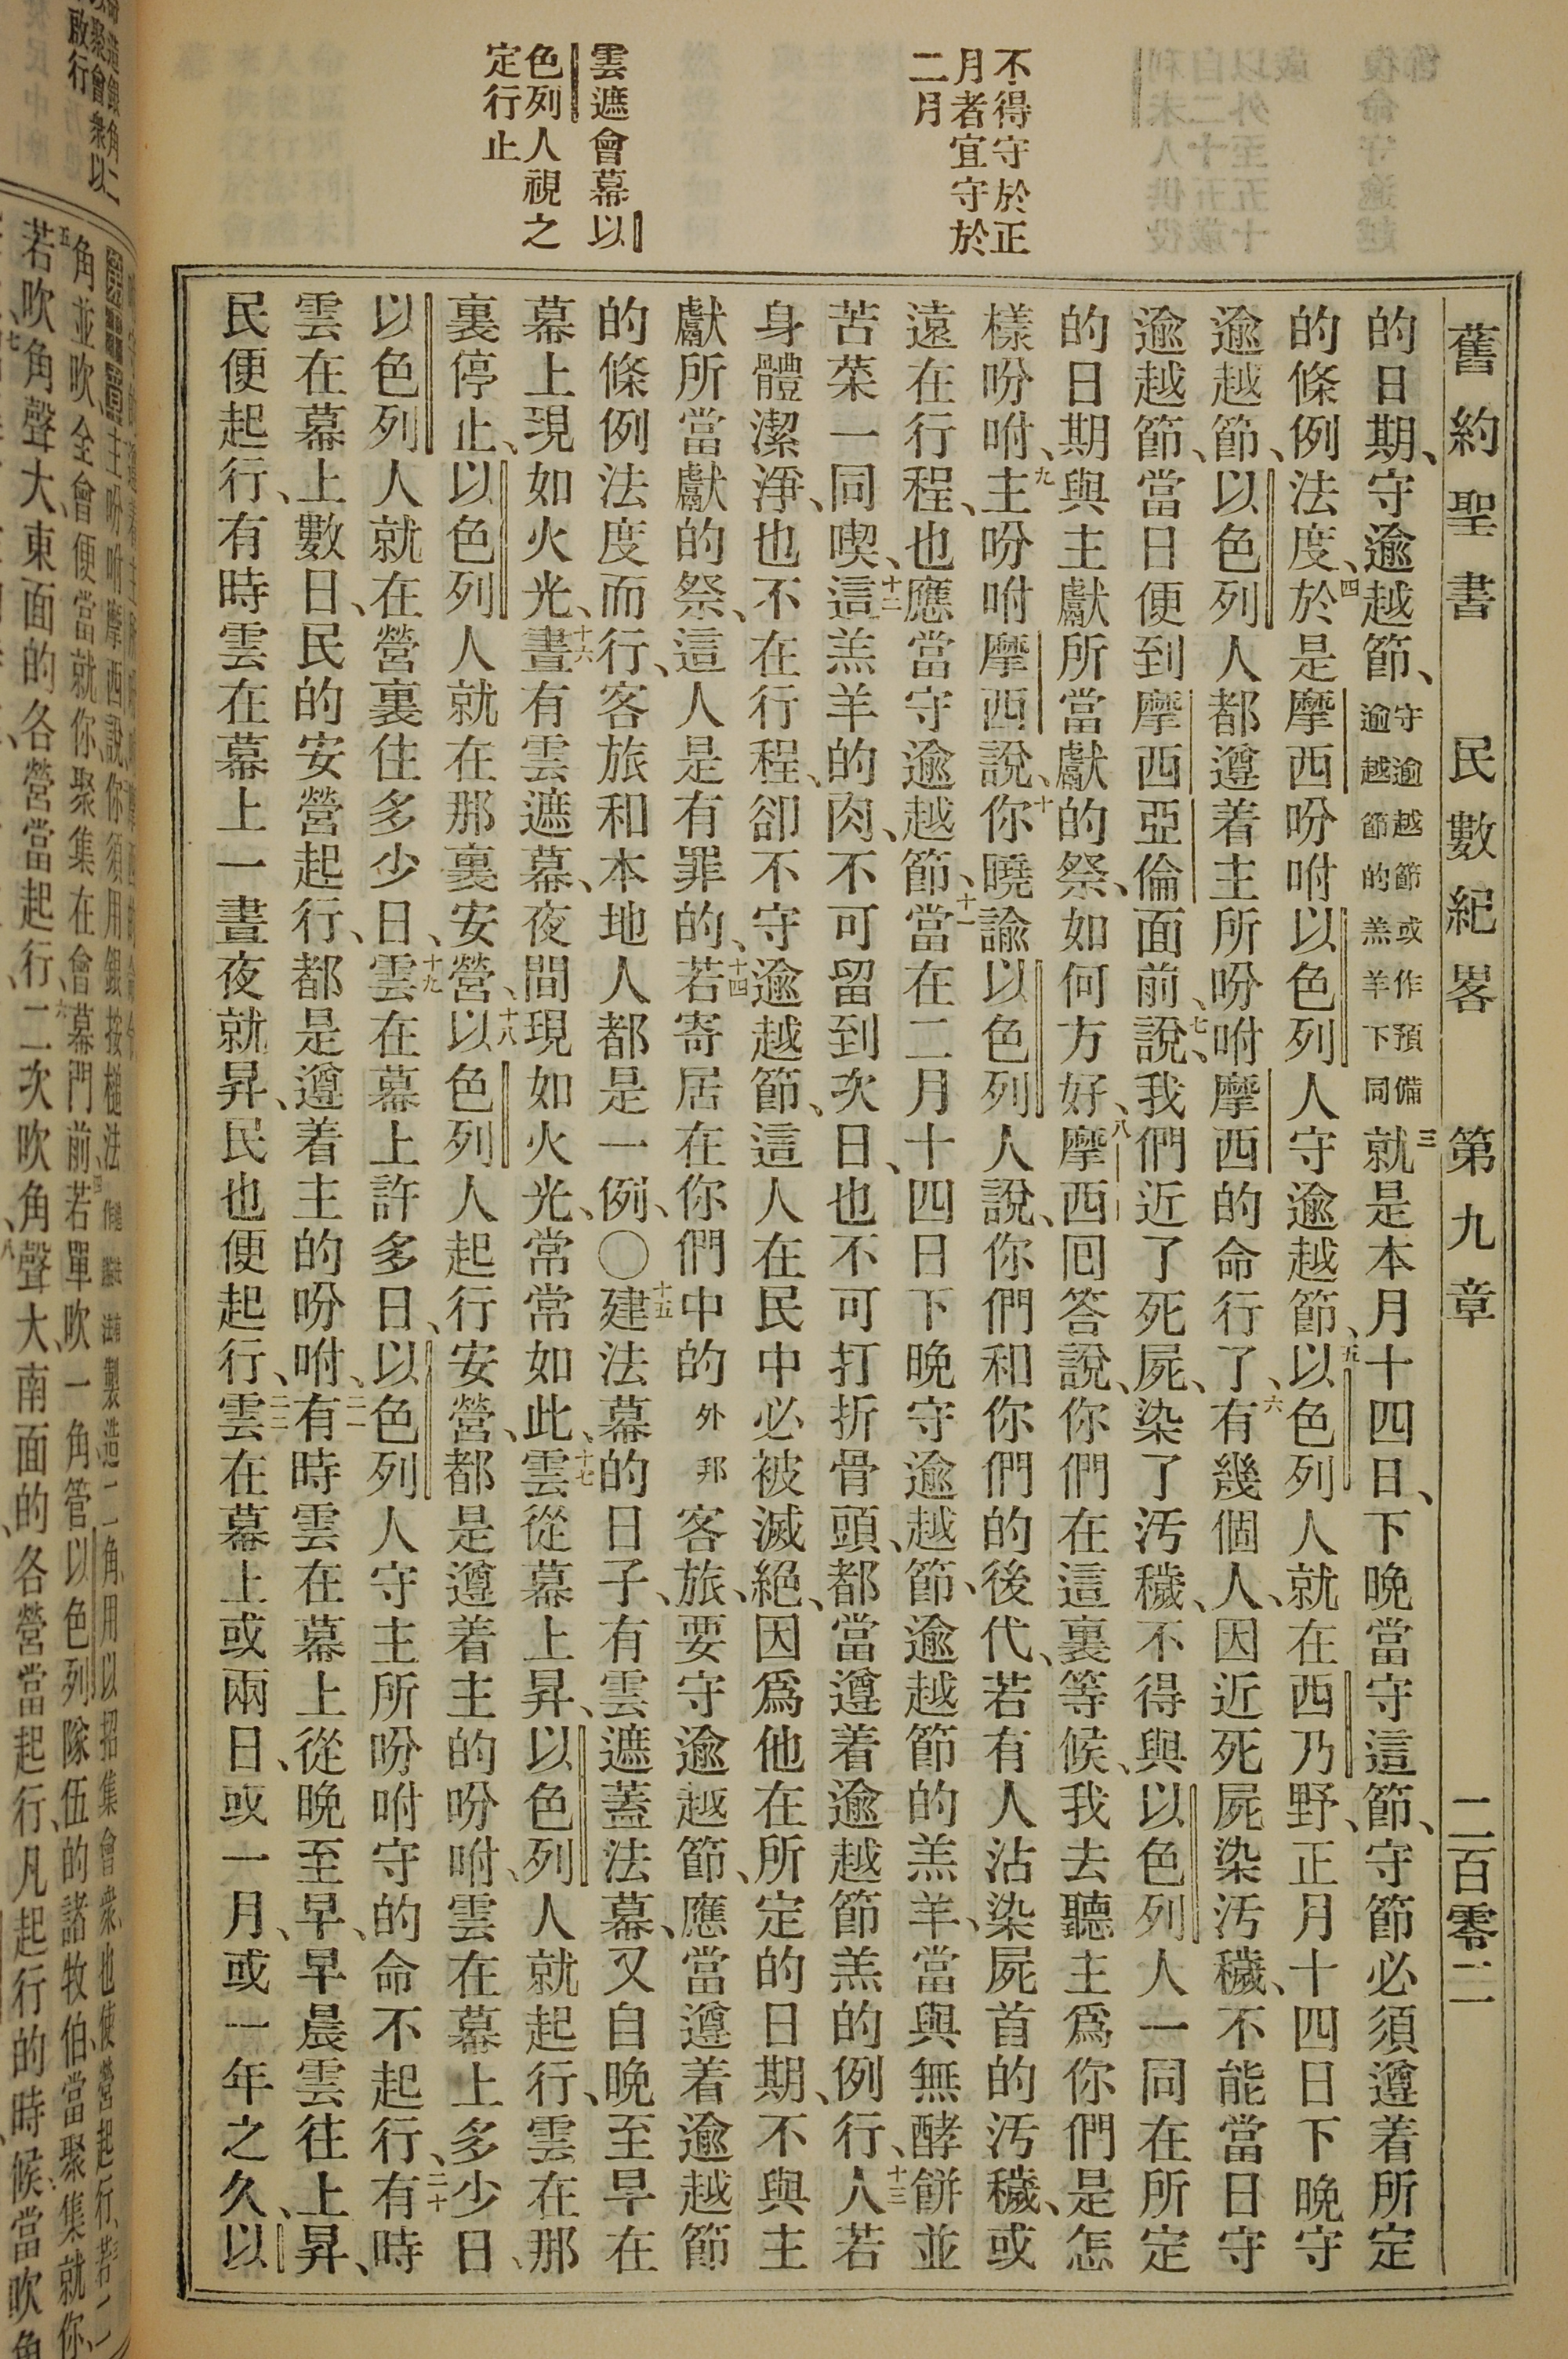 舊約聖書 民數紀畧 第九章 二百零二
不得守於正
月者宜守於
二月
雲遮會幕以
色列人視之
定行止
的日期、守逾越節、守逾越節或作預備逾越節的羔羊下同三就是本月十四日、下晚當守這節、守節必須遵着所定
的條例法度、四於是摩西吩咐以色列人守逾越節、五以色列人就在西乃野、正月十四日下晚守
逾越節、以色列人都遵着主所吩咐摩西的命行了、六有幾個人、因近死屍染汚穢、不能當日守
逾越節、當日便到摩西亞倫面前、七說、我們近了死屍、染了汚穢、不得與以色列人一同在所定
的日期、與主獻所當獻的祭、如何方好、八摩西囘答說、你們在這裏等候、我去聽主爲你們是怎
樣吩咐、九主吩咐摩西說、十你曉諭以色列人說、你們和你們的後代、若有人沾染屍首的汚穢、或
遠在行程、也應當守逾越節、十一當在二月十四日下晚守逾越節、逾越節的羔羊、當與無酵餅並
苦菜一同喫、十二這羔羊的肉、不可留到次日、也不可打折骨頭、都當遵着逾越節羔的例行、十三人若
身體潔淨、也不在行程、卻不守逾越節、這人在民中必被滅絕、因爲他在所定的日期、不與主
獻所當獻的祭、這人是有罪的、十四若寄居在你們中的外邦客旅、要守逾越節、應當遵着逾越節
的條例法度而行、客旅和本地人都是一例、〇十五建法幕的日子、有雲遮蓋法幕、又自晚至早在
幕上現如火光、十六晝有雲遮幕、夜間現如火光、常常如此、十七雲從幕上昇、以色列人就起行、雲在那
裏停止、以色列人就在那裏安營、十八以色列人起行安營、都是遵着主的吩咐、雲在幕上多少日、
以色列人就在營裏住多少日、十九雲在幕上許多日、以色列人守主所吩咐守的命不起行、二十有時
雲在幕上數日、民的安營起行、都是遵着主的吩咐、二一有時雲在幕上從晚至早、早晨雲往上昇、
民便起行、有時雲在幕上一晝夜就昇、民也便起行、二二雲在幕上或兩日、或一月、或一年之久、以